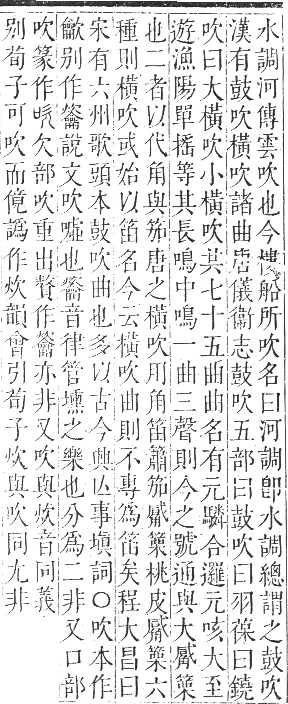 水調河傳雲吹也今樓船所吹名曰河調卽水調總謂之鼓吹
漢有鼓吹橫吹諸曲唐儀衞志鼓吹五部曰鼓吹曰羽葆曰鐃
吹曰大橫吹小橫吹共七十五曲曲名有元驎合邏元咳大至
遊漁陽單搖等其長鳴中鳴一曲三聲則今之號通與大觱篥
也二者以代角與笳唐之橫吹用角笛簫笳觱篥桃皮觱篥六
種則橫吹或始以笛名今云橫吹曲則不專爲笛矣程大昌曰
宋有六州歌頭本鼓吹曲也多以古今興亾事塡詞○吹本作
龡別作䶴說文吹噓也䶴音律管壎之樂也分爲二非又口部
吹篆作㕧欠部吹重出贅作䶴亦非又吹與炊音同義
別荀子可吹而僵譌作炊韻會引荀子炊與吹同尢非